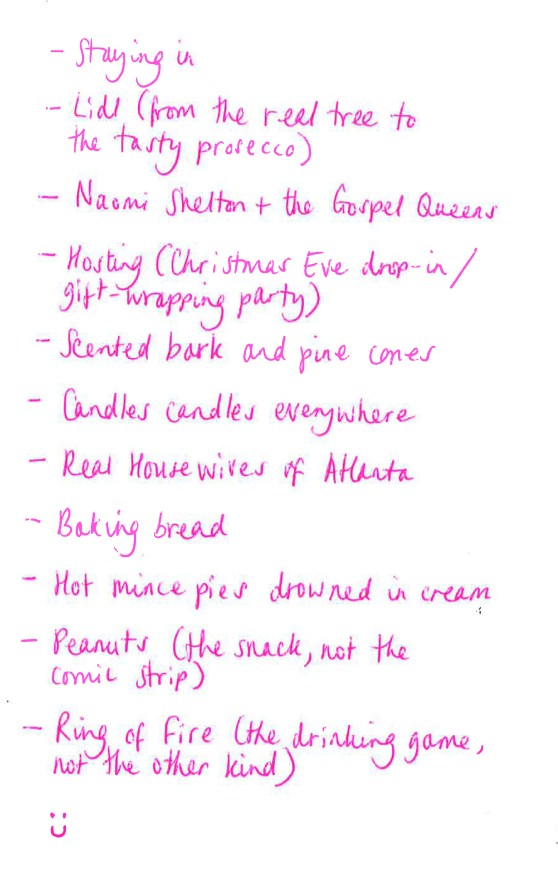 - Staying in
- Lidl (from the real tree to
the tasty prosecco)
- Naomi Shelton + the Gospel Queens
- Hosting (Christmas Eve drop-in/
gift-wrapping party)
- Scented bark and pine cones
- Candles candles everywhere
- Real Housewives of Atlanta
- Baking bread
- Hot mince pies drowned in cream
- Peanuts (the snack, not the
comic strip)
- Ring of Fire (the drinking game,
not the other kind)